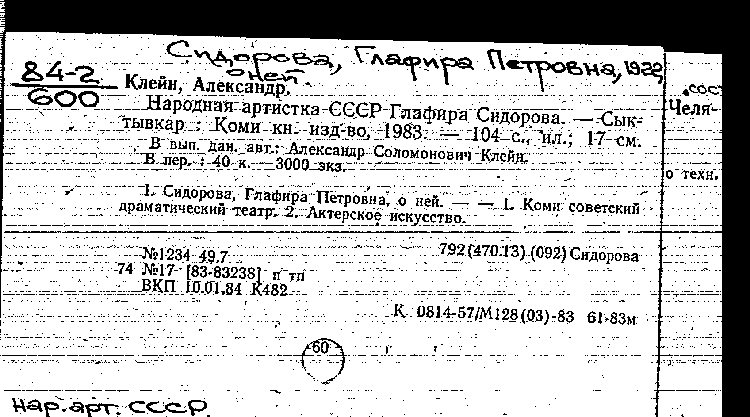 Сидорова, Глафира Петровна, 1922
о ней
84-2
600
Клейн, Александр.
Народная артистка СССР Глафира Сидорова. — Сык-
тывкар : Коми кн. изд-во, 1983. — 104 с., ил.; 17 см.
В вып. дан. авт.: Александр Соломонович Клейн.
В пер. : 40 к. 3000 экз.
1. Сидорова, Глафира Петровна, о ней. — — 1. Коми советский
драматический театр. 2. Актерское искусство.
№1234 49.7
792(470.13)(092) Сидорова
74 №17 [83-83238] п тп
ВКП 10.01.84 К482
К 0814-57/М128(03)-83 61-83м
60
нар. арт. СССР
сост
Челя-
о техн.